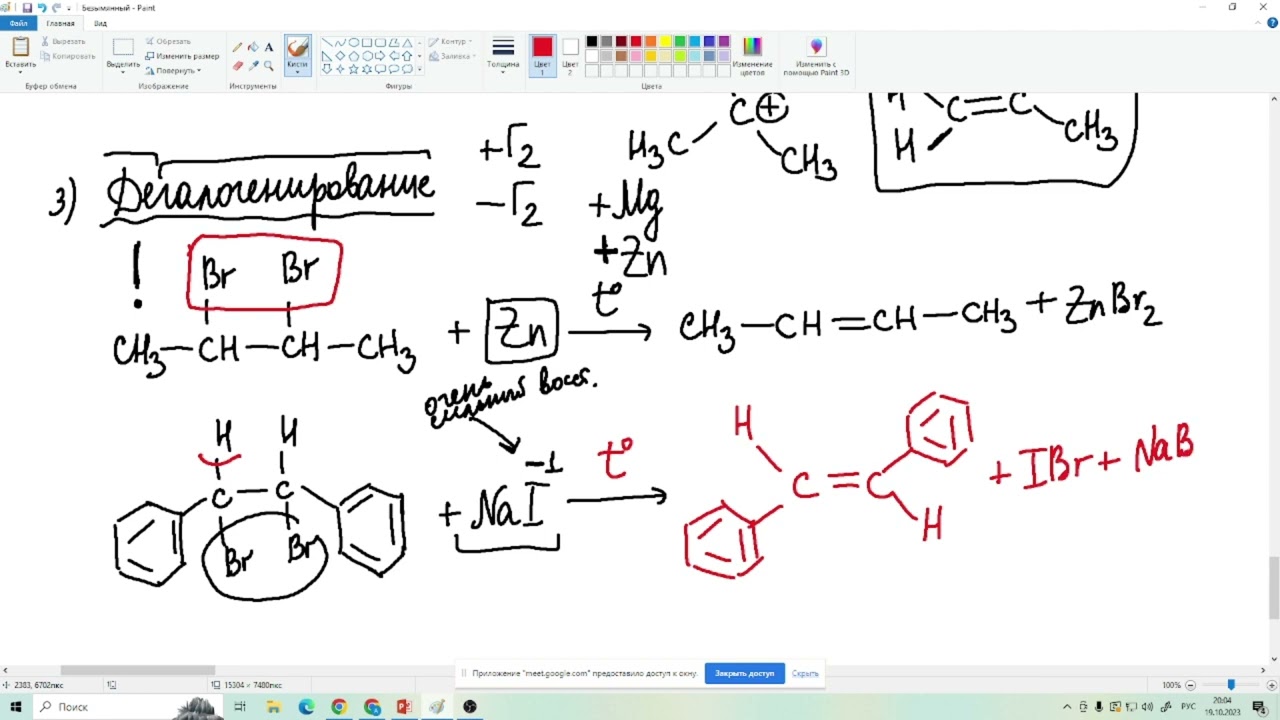 Безымянный - Paint
Файл Главная Вид
Вставить Вырезать Копировать
Выделить Обрезать Изменить размер Повернуть
Кисти
Контур Заливка
Толщина
Цвет 1 Цвет 2
Изменение цветов
Изменить с помощью Paint 3D
Буфер обмена Изображение Инструменты Фигуры Цвета
H C=C CH3
H
H3C C+ CH3
3) Дегалогенирование +Г2
−Г2 +Mg
+Zn
! Br Br
CH3—CH—CH—CH3 + Zn t° → CH3—CH=CH—CH3 + ZnBr2
очень сильный восст.
H H
C—C + NaI −1 t° → H C=C H + IBr + NaB
Br Br
Приложение "meet.google.com" предоставило доступ к окну. Закрыть доступ Скрыть
2383, 6702пкс 15304 × 7480пкс 100%
Поиск РУС 20:04
19.10.2023